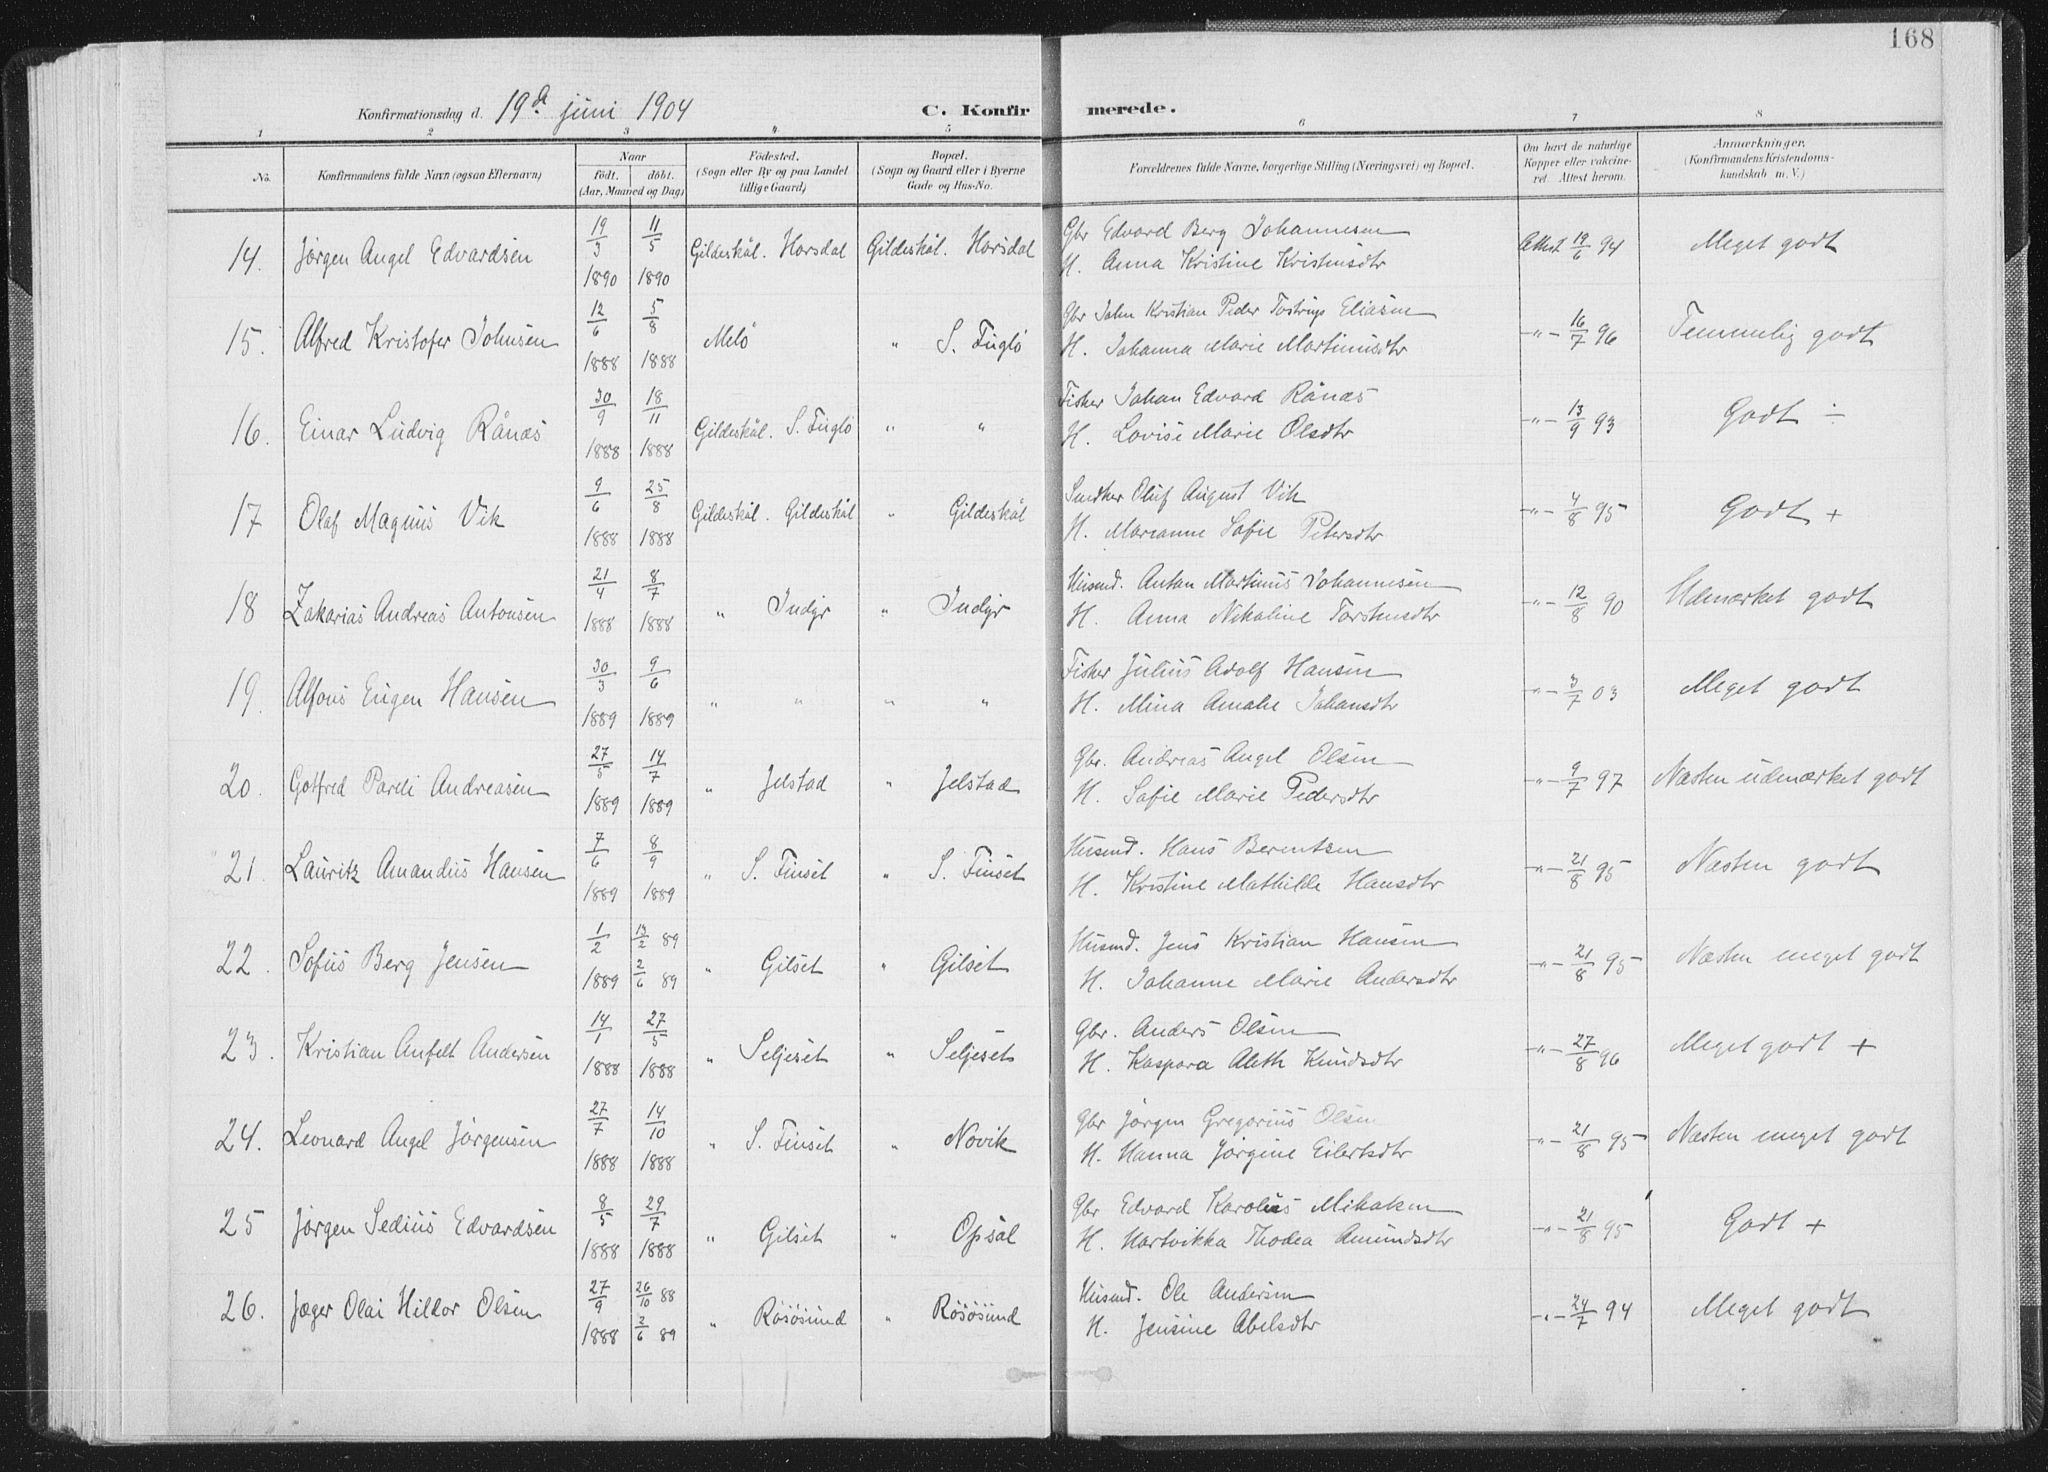 168
Konfirmationsdag d. 19de juni 1904
C. Konfirmerede.
1 2 3 4 5 6 7 8
No.
Konfirmandens fulde Navn (ogsaa Efternavn)
Naar
født. døbt.
(Aar, Maaned og Dag)
Fødested.
(Sogn eller By og paa Landet
tillige Gaard)
Bopæl.
(Sogn og Gaard eller i Byerne
Gade og Hus-No.
Forældrenes fulde Navne, borgerlige Stilling (Næringsvei) og Bopæl.
Om havt de naturlige
Kopper eller vakcine-
ret. Attest herom.
Anmærkninger,
(Konfirmandens Kristendoms-
kundskab m. V.)
14. Jørgen Angel Edvardsen 19/3 1890 11/5 1890 Gildeskål. Horsdal Gildeskål. Horsdal
Gbr Edvard Berg Johannesen
H. Anna Kristine Kristensdtr
Attest 19/6 94 Meget godt
15. Alfred Kristofer Johnsen 12/6 1888 5/8 1888 Melö " S. Fuglö
Gbr John Kristian Peder Tostrup Eliasen
H. Johanna Marie Martinusdtr
-"- 16/7 96 Temmelig godt
16. Einar Ludvig Rånæs 30/9 1888 18/11 1888 Gildeskål. S. Fuglö " "
Fisker Johan Edvard Rånæs
H. Lovise Marie Olsdtr
-"- 13/9 93 Godt ÷
17 Olaf Magnus Vik 9/6 1888 25/8 1888 Gildeskål. Gildeskål " Gildeskål
Snedker Oluf August Vik
H. Marianne Sofie Petersdtr
-"- 4/8 95 Godt +
18 Zakarias Andreas Antonsen 21/4 1888 8/7 1888 " Indyr " Indyr
Husmd. Anton Martinus Johannesen
H. Anna Nikoline Torstensdtr
-"- 12/8 90 Udmærket godt
19. Alfons Eugen Hansen 30/3 1889 9/6 1889 " " " "
Fisker Julius Adolf Hansen
H. Mina Amalie Johansdtr
-"- 3/7 03 Meget godt
20. Gotfred Pareli Andreasen 27/5 1889 14/7 1889 " Jelstad " Jelstad
Gbr. Andreas Angel Olsen
H. Sofie Marie Pedersdtr
-"- 9/7 97 Næsten udmærket godt
21. Lauritz Amandus Hansen 7/6 1889 8/9 1889 " S. Finset " S. Finset
Husmd. Hans Berentsen
H. Kristine Mathilde Hansdtr
-"- 21/8 95 Næsten godt
22. Sofus Berg Jensen 1/2 1889 13/2 89 2/6 89 " Gilset " Gilset
Husmd. Jens Kristian Hansen
H. Johanne Marie Andersdtr
-"- 21/8 95 Næsten meget godt
23. Kristian Anfelt Andersen 14/1 1888 27/5 1888 " Seljeset " Seljeset
Gbr. Anders Olsen
H. Kaspara Aleth Knudsdtr
-"- 27/8 96 Meget godt +
24. Leonard Angel Jørgensen 27/7 1888 14/10 1888 " S. Finset " Novik
Gbr Jørgen Gregorius Olsen
H. Hanna Jørgine Eilertsdtr
-"- 21/8 95 Næsten meget godt
25 Jørgen Sedius Edvardsen 8/5 1888 29/7 1888 " Gilset " Opsal
Gbr Edvard Karolius Mikalsen
H. Hartvikka Thodea Amundsdtr
-"- 21/8 95 Godt +
26. Jæger Olai Hildor Olsen 27/9 1888 26/10 88 2/6 89 " Rösösund " Rösösund
Husmd. Ole Andersen
H. Jensine Abelsdtr
-"- 24/7 94 Meget godt